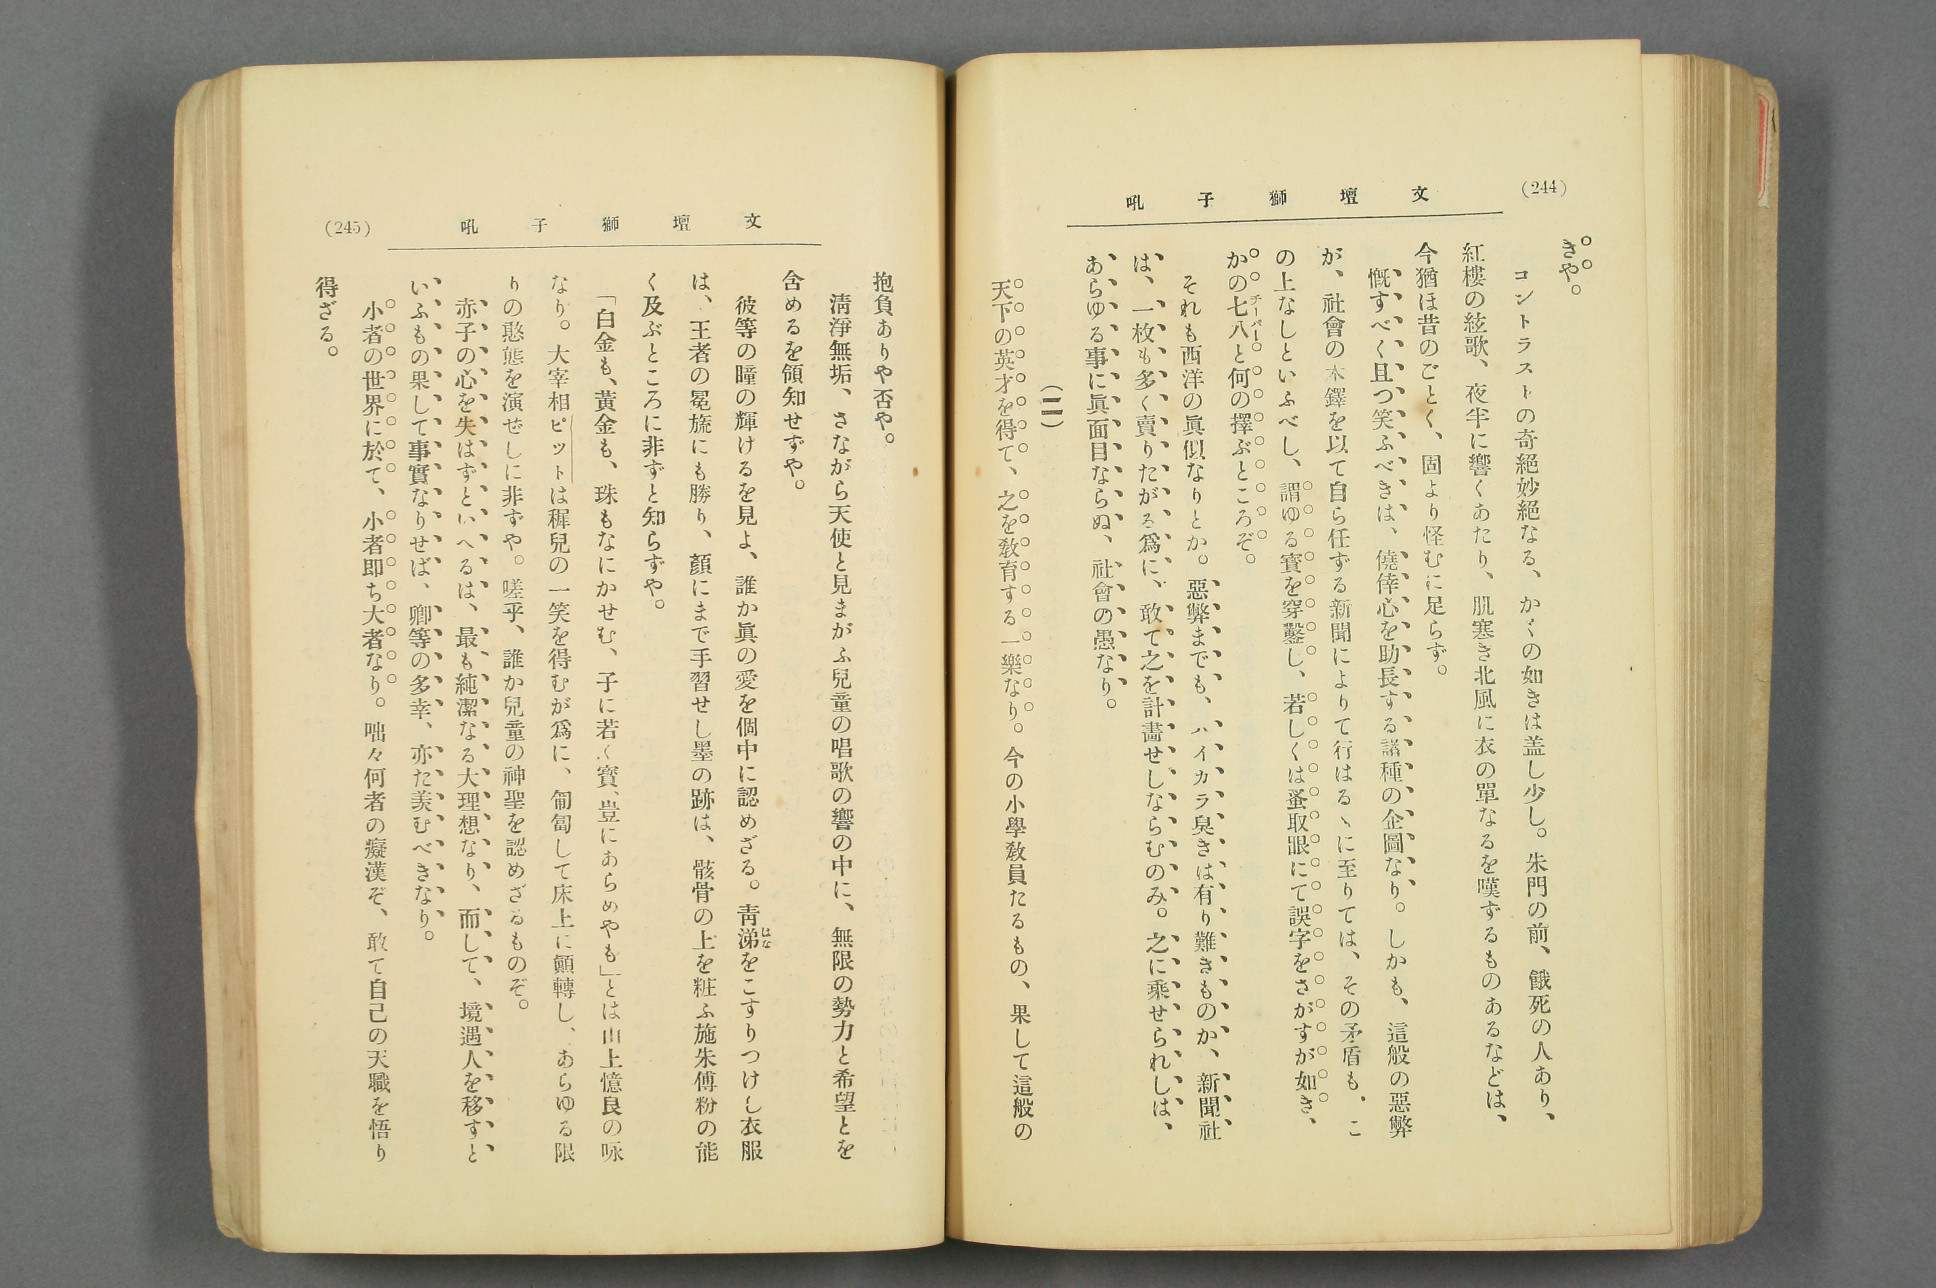 (244)
文壇獅子吼
きや。
コントラストの奇絕妙絕なる、かくの如きは盖し少し。朱門の前、餓死の人あり、
紅樓の絃歌、夜半に響くあたり、肌寒き北風に衣の單なるを嘆ずるものあるなどは、
今猶ほ昔のごとく、固より怪むに足らず。
慨すべく且つ笑ふべきは、僥倖心を助長する諸種の企圖なり。しかも、這般の惡弊
が、社會の木鐸を以て自ら任ずる新聞によりて行はるゝに至りては、その矛盾も、こ
の上なしといふべし、謂ゆる寳を穿鑿し、若しくは蚤取眼にて誤字をさがすが如き、
かの七八と何の擇ぶところぞ。
チーパー
それも西洋の眞似なりとか。惡弊までも、ハイカラ臭きは有り難きものか、新聞社
は、一枚も多く賣りたがる爲に、敢て之を計畵せしならむのみ。之に乘せられしは、
あらゆる事に眞面目ならぬ、社會の愚なり。
(二)
天下の英才を得て、之を敎育する一樂なり。今の小學敎員たるもの、果して這般の
(245)
文壇獅子吼
抱負ありや否や。
淸淨無垢、さながら天使と見まがふ兒童の唱歌の響の中に、無限の勢力と希望とを
含めるを領知せずや。
彼等の瞳の輝けるを見よ、誰か眞の愛を個中に認めざる。靑涕をこすりつけし衣服
はな
は、王者の冕旒にも勝り、顏にまで手習せし墨の跡は、骸骨の上を粧ふ施朱傅粉の能
く及ぶところに非ずと知らずや。
「白金も、黃金も、珠もなにかせむ、子に若く寳、豈にあらめやも」とは山上憶良の咏
なり。大宰相ピットは穉兒の一笑を得むが爲に、匍匐して床上に顚轉し、あらゆる限
りの憨態を演ぜしに非ずや。嗟乎、誰か兒童の神聖を認めざるものぞ。
赤子の心を失はずといへるは、最も純潔なる大理想なり、而して、境遇人を移すと
いふもの果して事實なりせば、卿等の多幸、亦た羨むべきなり。
小者の世界に於て、小者即ち大者なり。咄々何者の癡漢ぞ、敢て自己の天職を悟り
得ざる。